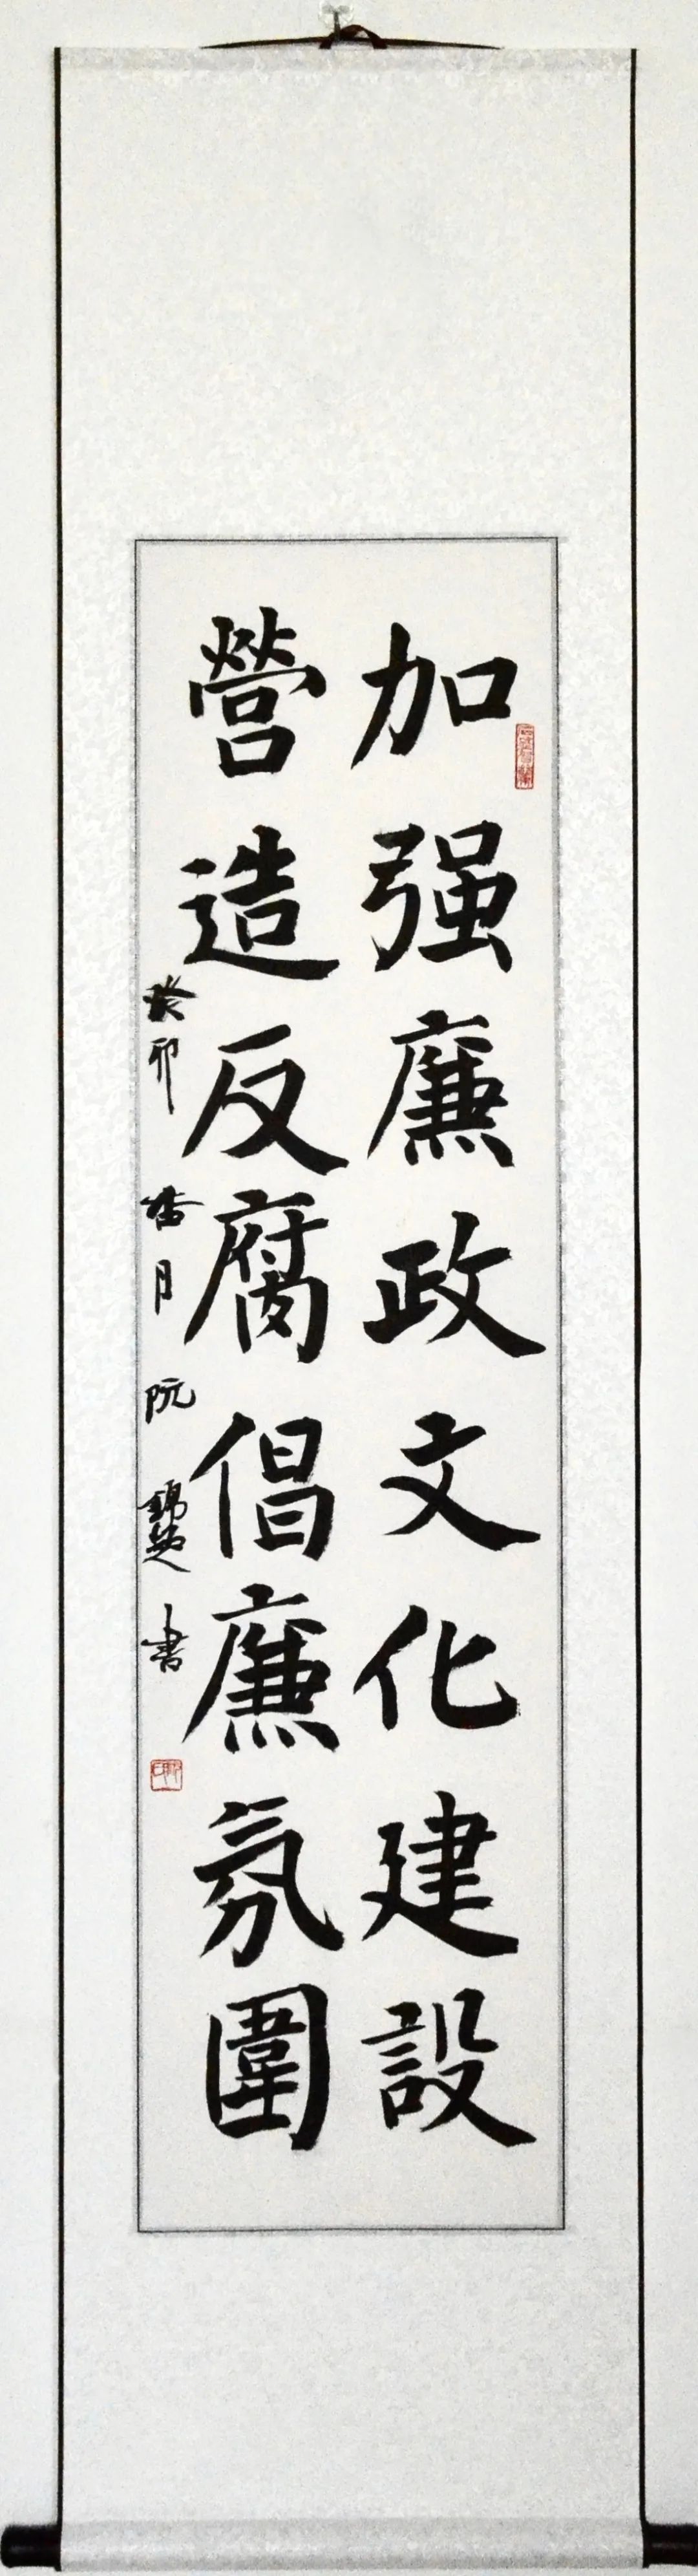 加强廉政文化建設
營造反腐倡廉氛圍
癸卯杏月阮錦超書